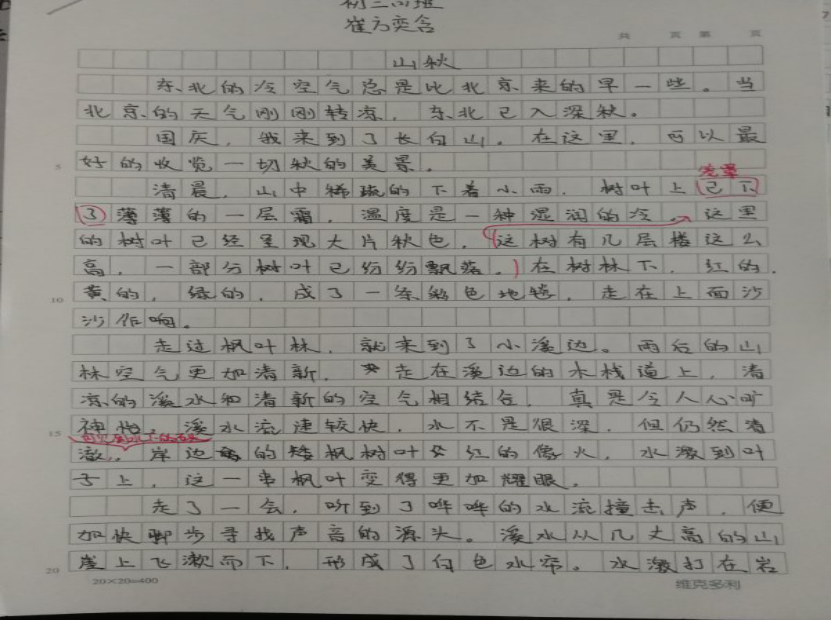 崔方奕含
共 页 第 页
山秋
东北的冷空气总是比北京来的早一些。当
北京的天气刚刚转凉,东北已入深秋。
国庆,我来到了长白山。在这里,可以最
5
好的收览一切秋的美景。
清晨,山中稀疏的下着小雨,树叶上已下
了薄薄的一层霜,温度是一种湿润的冷。这里
的树叶已经呈现大片秋色,(这树有几层楼这么
高,一部分树叶已纷纷飘落。)在树林下,红的,
10
黄的,绿的,成了一条彩色地毯,走在上面沙
沙作响。
走过枫叶林,就来到了小溪边。雨后的山
林空气更加清新,走在溪边的木栈道上,清
凉的溪水和清新的空气相结合,真是令人心旷
15
神怡,溪水流速较快,水不是很深,但仍然清
澈,岸边的矮枫树叶红的像火,水溅到叶
子上,这一串枫叶变得更加耀眼。
走了一会,听到了哗哗的水流撞击声,便
加快脚步寻找声音的源头。溪水从几丈高的山
20
崖上飞漱而下,形成了白色水帘。水溅打在岩
20×20=400
维克多利